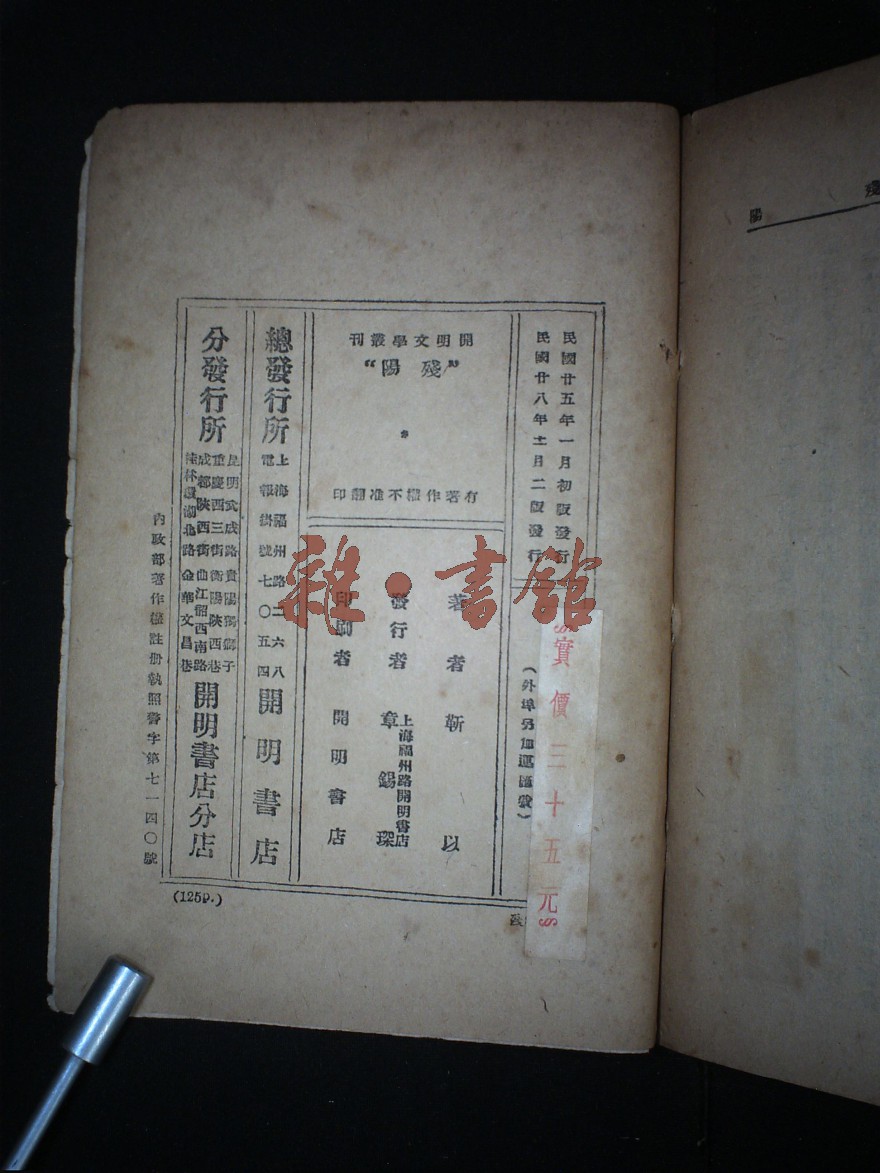 民國廿五年一月初版發行
民國廿八年十一月二版發行
實價三十五元
(外埠另加運匯費)
開明文學叢刊
"殘陽"
有著作權不准翻印
著者 靳以
發行者 章錫琛
上海福州路開明書店
印刷者 開明書店
總發行所
上海福州路二六八
電報掛號七〇五四
開明書店
分發行所
昆明武成路貴陽獨獅子
重慶西三街衡陽陝西巷
成都陝西街曲江韶西南路
桂林環湖北路金華文昌巷
開明書店分店
內政部著作權註冊執照警字第七一四〇號
(125P.)
殘
陽
雜·書館